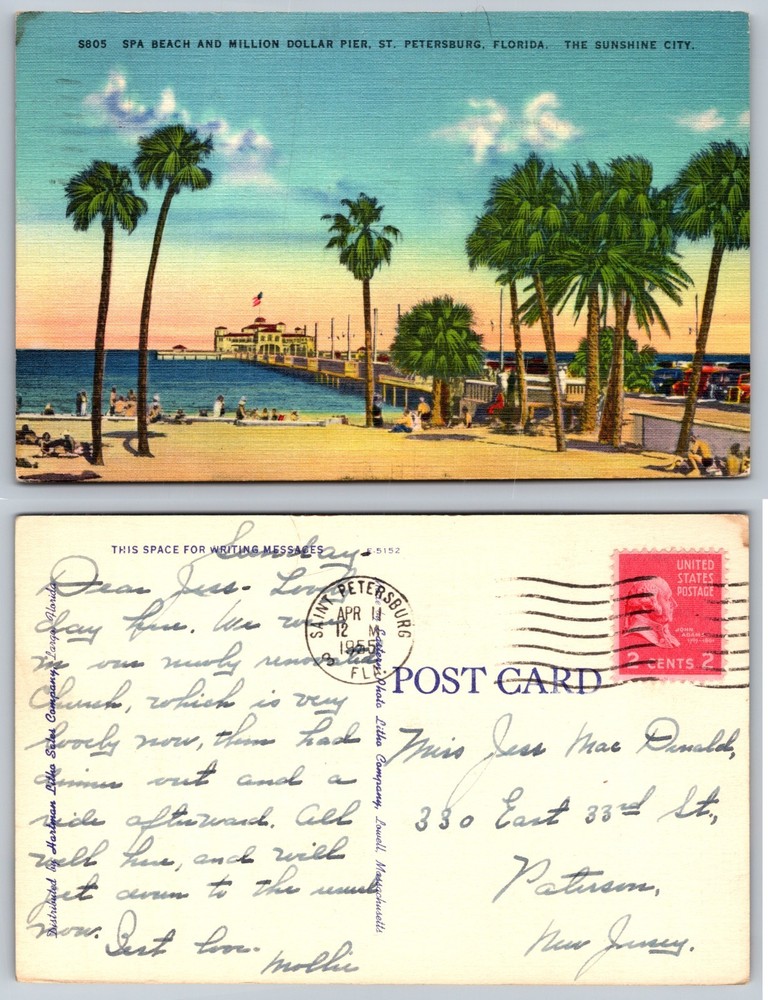 S805 SPA BEACH AND MILLION DOLLAR PIER, ST. PETERSBURG, FLORIDA, THE SUNSHINE CITY.
THIS SPACE FOR WRITING MESSAGES
E-5152
Sunday-
Dear Jess- Lovely
day here. We were
in our newly renovated
Church, which is very
lovely now, then had
dinner out and a
ride afterward. All
well here, and will
get down to the usual
now.
Best love-
Mollie
Distributed by Hartman Litho Sales Company, Largo, Florida
Eastern Photo Litho Company, Lowell, Massachusetts
SAINT PETERSBURG
APR 11
12 M
1955
3
FLA
UNITED
STATES
POSTAGE
JOHN
ADAMS
2 CENTS 2
POST CARD
Miss Jess Mac Donald,
330 East 33rd St.,
Paterson,
New Jersey.